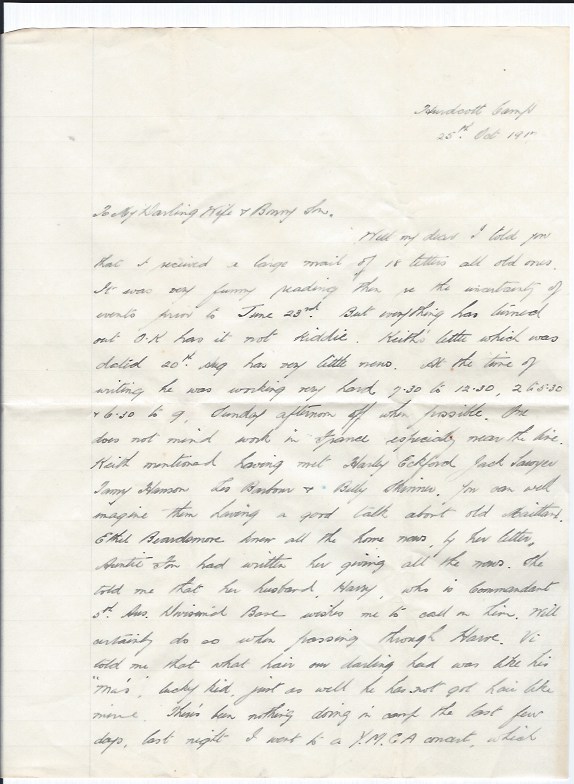 Hurdcott Camp
25th Oct 191
To My Darling Wife & Bonny Son.
Well my dear I told you
that I received a large mail of 18 letters all old ones.
It was very funny reading them re the uncertainty of
events prior to June 23rd. But everything has turned
out O.K has it not kiddie. Keith's letter which was
dated 20th Aug has very little news. At the time of
writing he was working very hard, 7-30 to 12-30, 2 to 5-30
& 6-30 to 9, Sunday afternoon off when possible. One
does not mind work in France especially near the line.
Keith mentioned having met Harley Eckford Jack Sawyer
Hanson Les Barbour & Billy Skinner. You can well
imagine them having a good talk about old Maitland.
Ethel Beardsmore knew all the home news, by her letter,
Auntie had written her giving all the news. She
told me that her husband, Harry, who is Commandant
5th Aus. Divisional Base wishes me to call on him. Will
certainly do so when passing through Havre. Vi
told me that what hair our darling had was like his
"Ma's", lucky kid, just as well he has not got hair like
mine. There's been nothing doing in camp the last few
days, last night I went to a Y.M.C.A concert, which